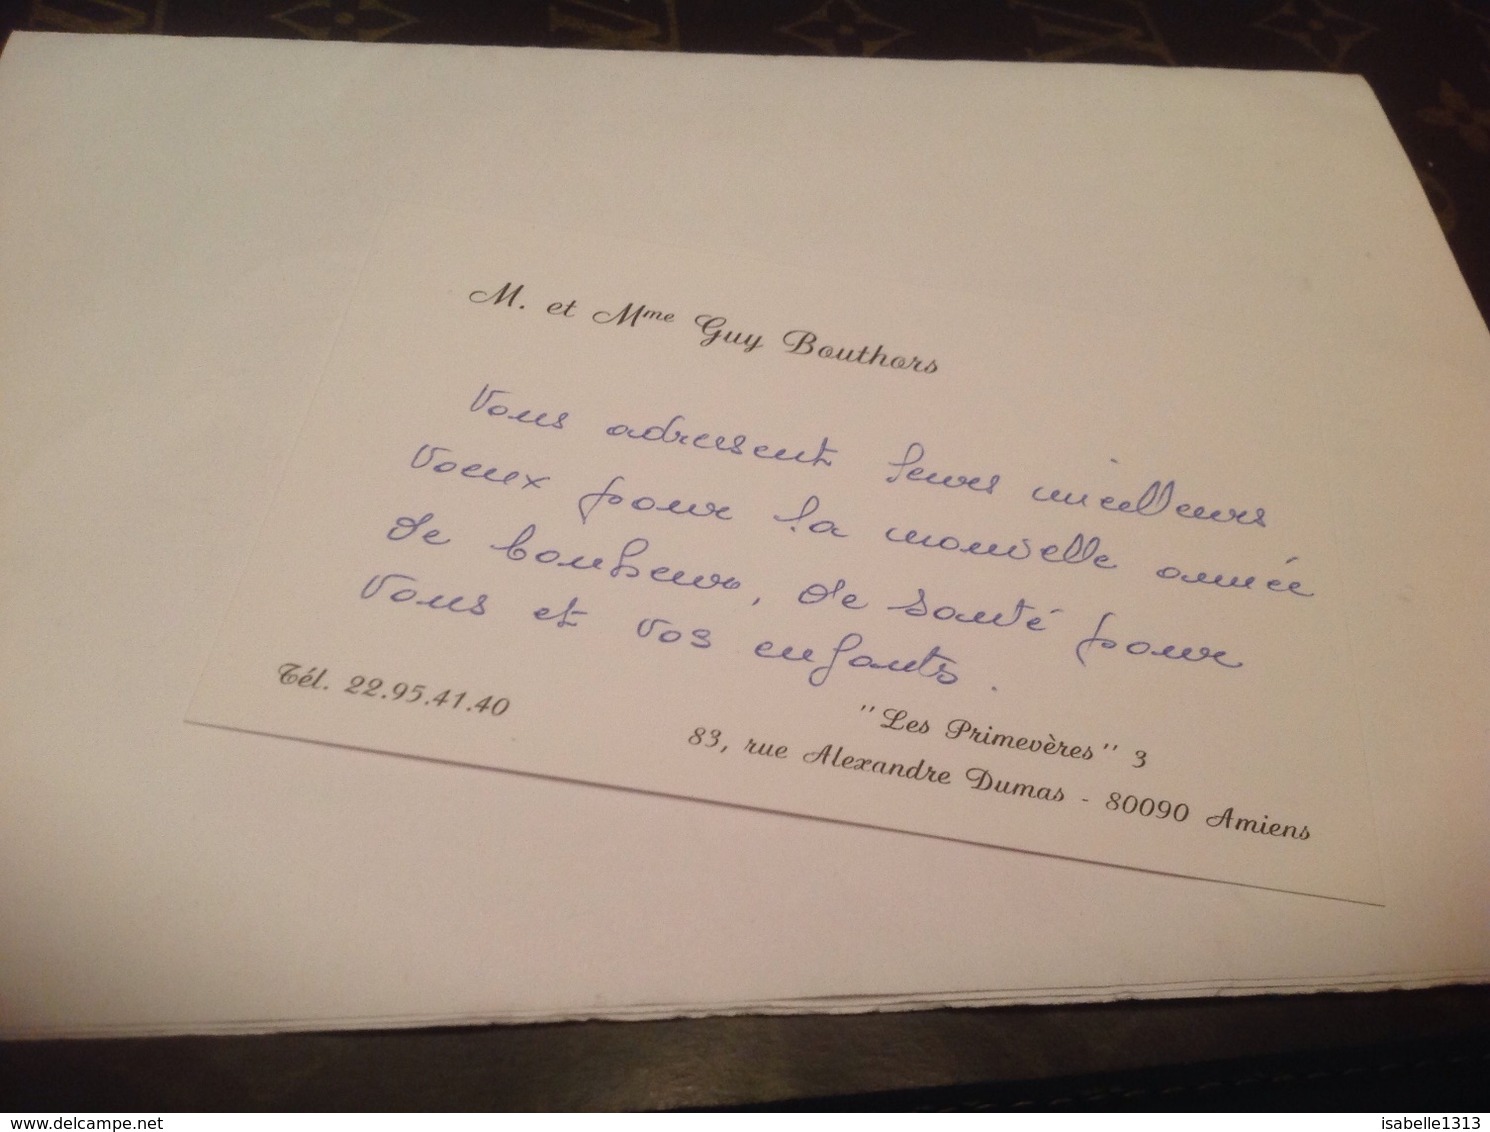 M. et Mme Guy Bouthors
Vous adressent leurs meilleurs
voeux pour la nouvelle année
de bonheur, de santé pour
vous et vos enfants.
Tél. 22.95.41.40
"Les Primevères" 3
83, rue Alexandre Dumas - 80090 Amiens
www.delcampe.net
isabelle1313